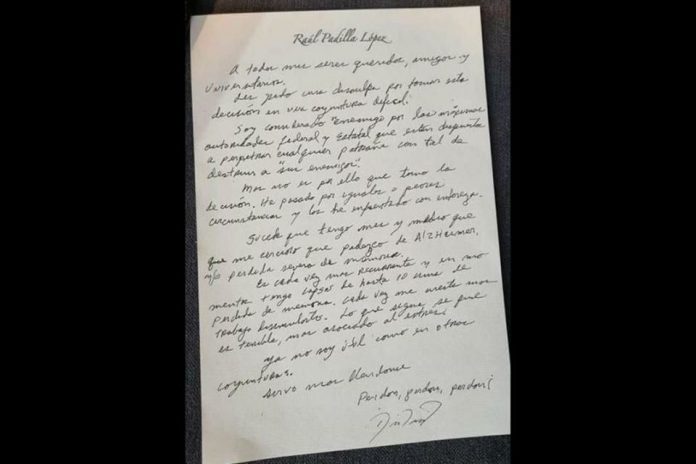 Raúl Padilla López
A todos mis seres queridos, amigos y
Universitarios.
Les pido una disculpa por tomar esta
decisión en una coyuntura difícil.
Soy considerado "enemigo por las máximas
autoridades federal y Estatal que están dispuestas
a perpetrar cualquier patraña con tal de
destruir a "sus enemigos".
Mas no es por ello que tomo la
decisión. He pasado por iguales o peores
circunstancias y las he enfrentado con entereza.
Sucede que tengo mes y medio que
que me cercioro que padezco de Alzheimer.
y/o perdida severa de memoria.
Es cada vez mas recurrente y en mo
mentos tengo lapsos de hasta 10 de
perdida de memoria. Cada vez me cuesta mas
trabajo disimularlo. Lo que sigue, se que
es terrible, mas asociado al estres.
Ya no soy útil como en otras
coyunturas.
Sirvo mas
Perdon, perdon, perdon¡